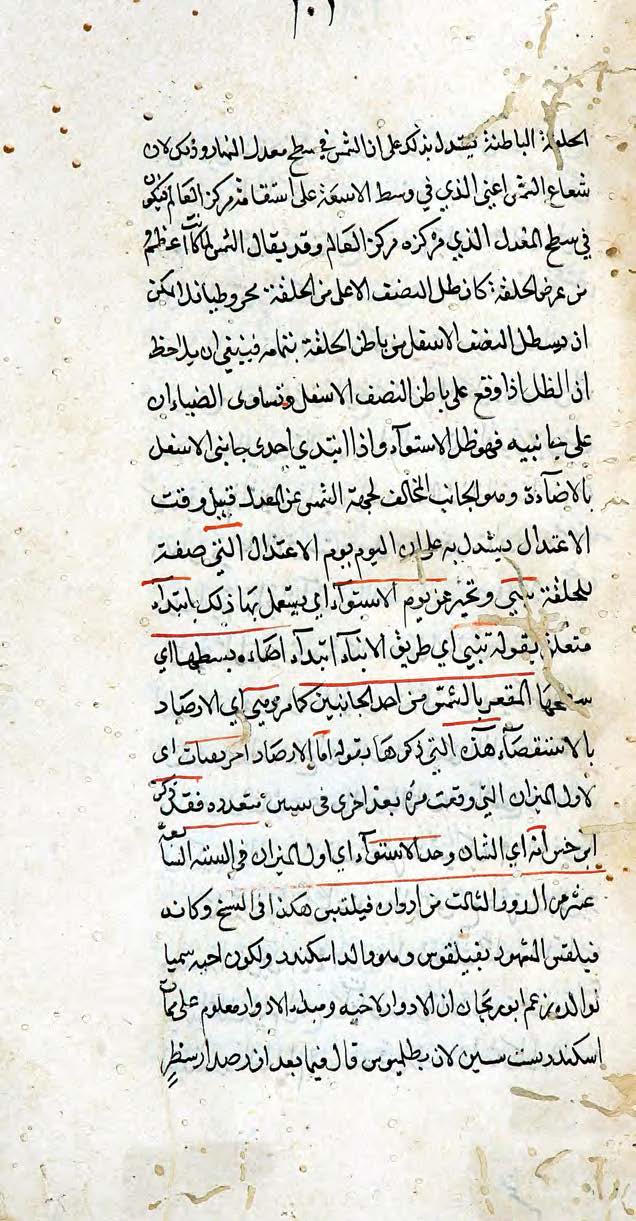 الحلقة الباطنة يستدل بذلك على ان الشمس في سطح معدل النهار وذلك لان
شعاع الشمس اعنى الذي في وسط الاشعة على استقامة مركز العالم فيكون
في سطح المعدل الذي مركزه مركز العالم وقد يقال الشمس لما كانت اعظم
من عرض الحلقة كان ظل النصف الاعلى من الحلقة مخروطيا فلا يمكن
ان يستظل النصف الاسفل من باطن الحلقة بتمامه فينبغي ان يلاحظ
ان الظل اذا وقع على باطن النصف الاسفل وتساوى الضياءان
على جانبيه فهو ظل الاستوآء واذا ابتدي احدى جانبى الاسفل
بالاضآءة وهو الجانب المخالف لجهة الشمس عن المعدل قبيل وقت
الاعتدال يستدل به على ان اليوم يوم الاعتدال التي صفة
للحلقة تنبي وتخبر عن يوم الاستوآء اي يستعمل بها ذلك بابتدآء
متعلق بقوله تنبي اي طريق الانبآء ابتدآء اضاءه بسطها اي
سطحها المقعر بالشمس من احد الجانبين كما مر وهي اي الارصاد
بالاستقصآء هذه التي ذكرها بقوله اما الارصاد الخريفيات اى
لاول الميزان التي وقعت مرة بعد اخرى في سنين متعدده فقد ذكر
ابرخس انه اي الشان وجد الاستوآء اي اول الميزان في السنه السابعة
عشر من الدور الثالث من ادوار فيلتبس هكذا في النسخ وكانه
فيلقس المشهور بفيلقوس وهو والد اسكندر ولكون اخيه سميا
لوالده زعم ابو ريحان ان الادوار لاخيه ومبداء الادوار معلوم على ممات
اسكندر ست سنين لان بطلميوس قال فيما بعد ان رصد ارسطر